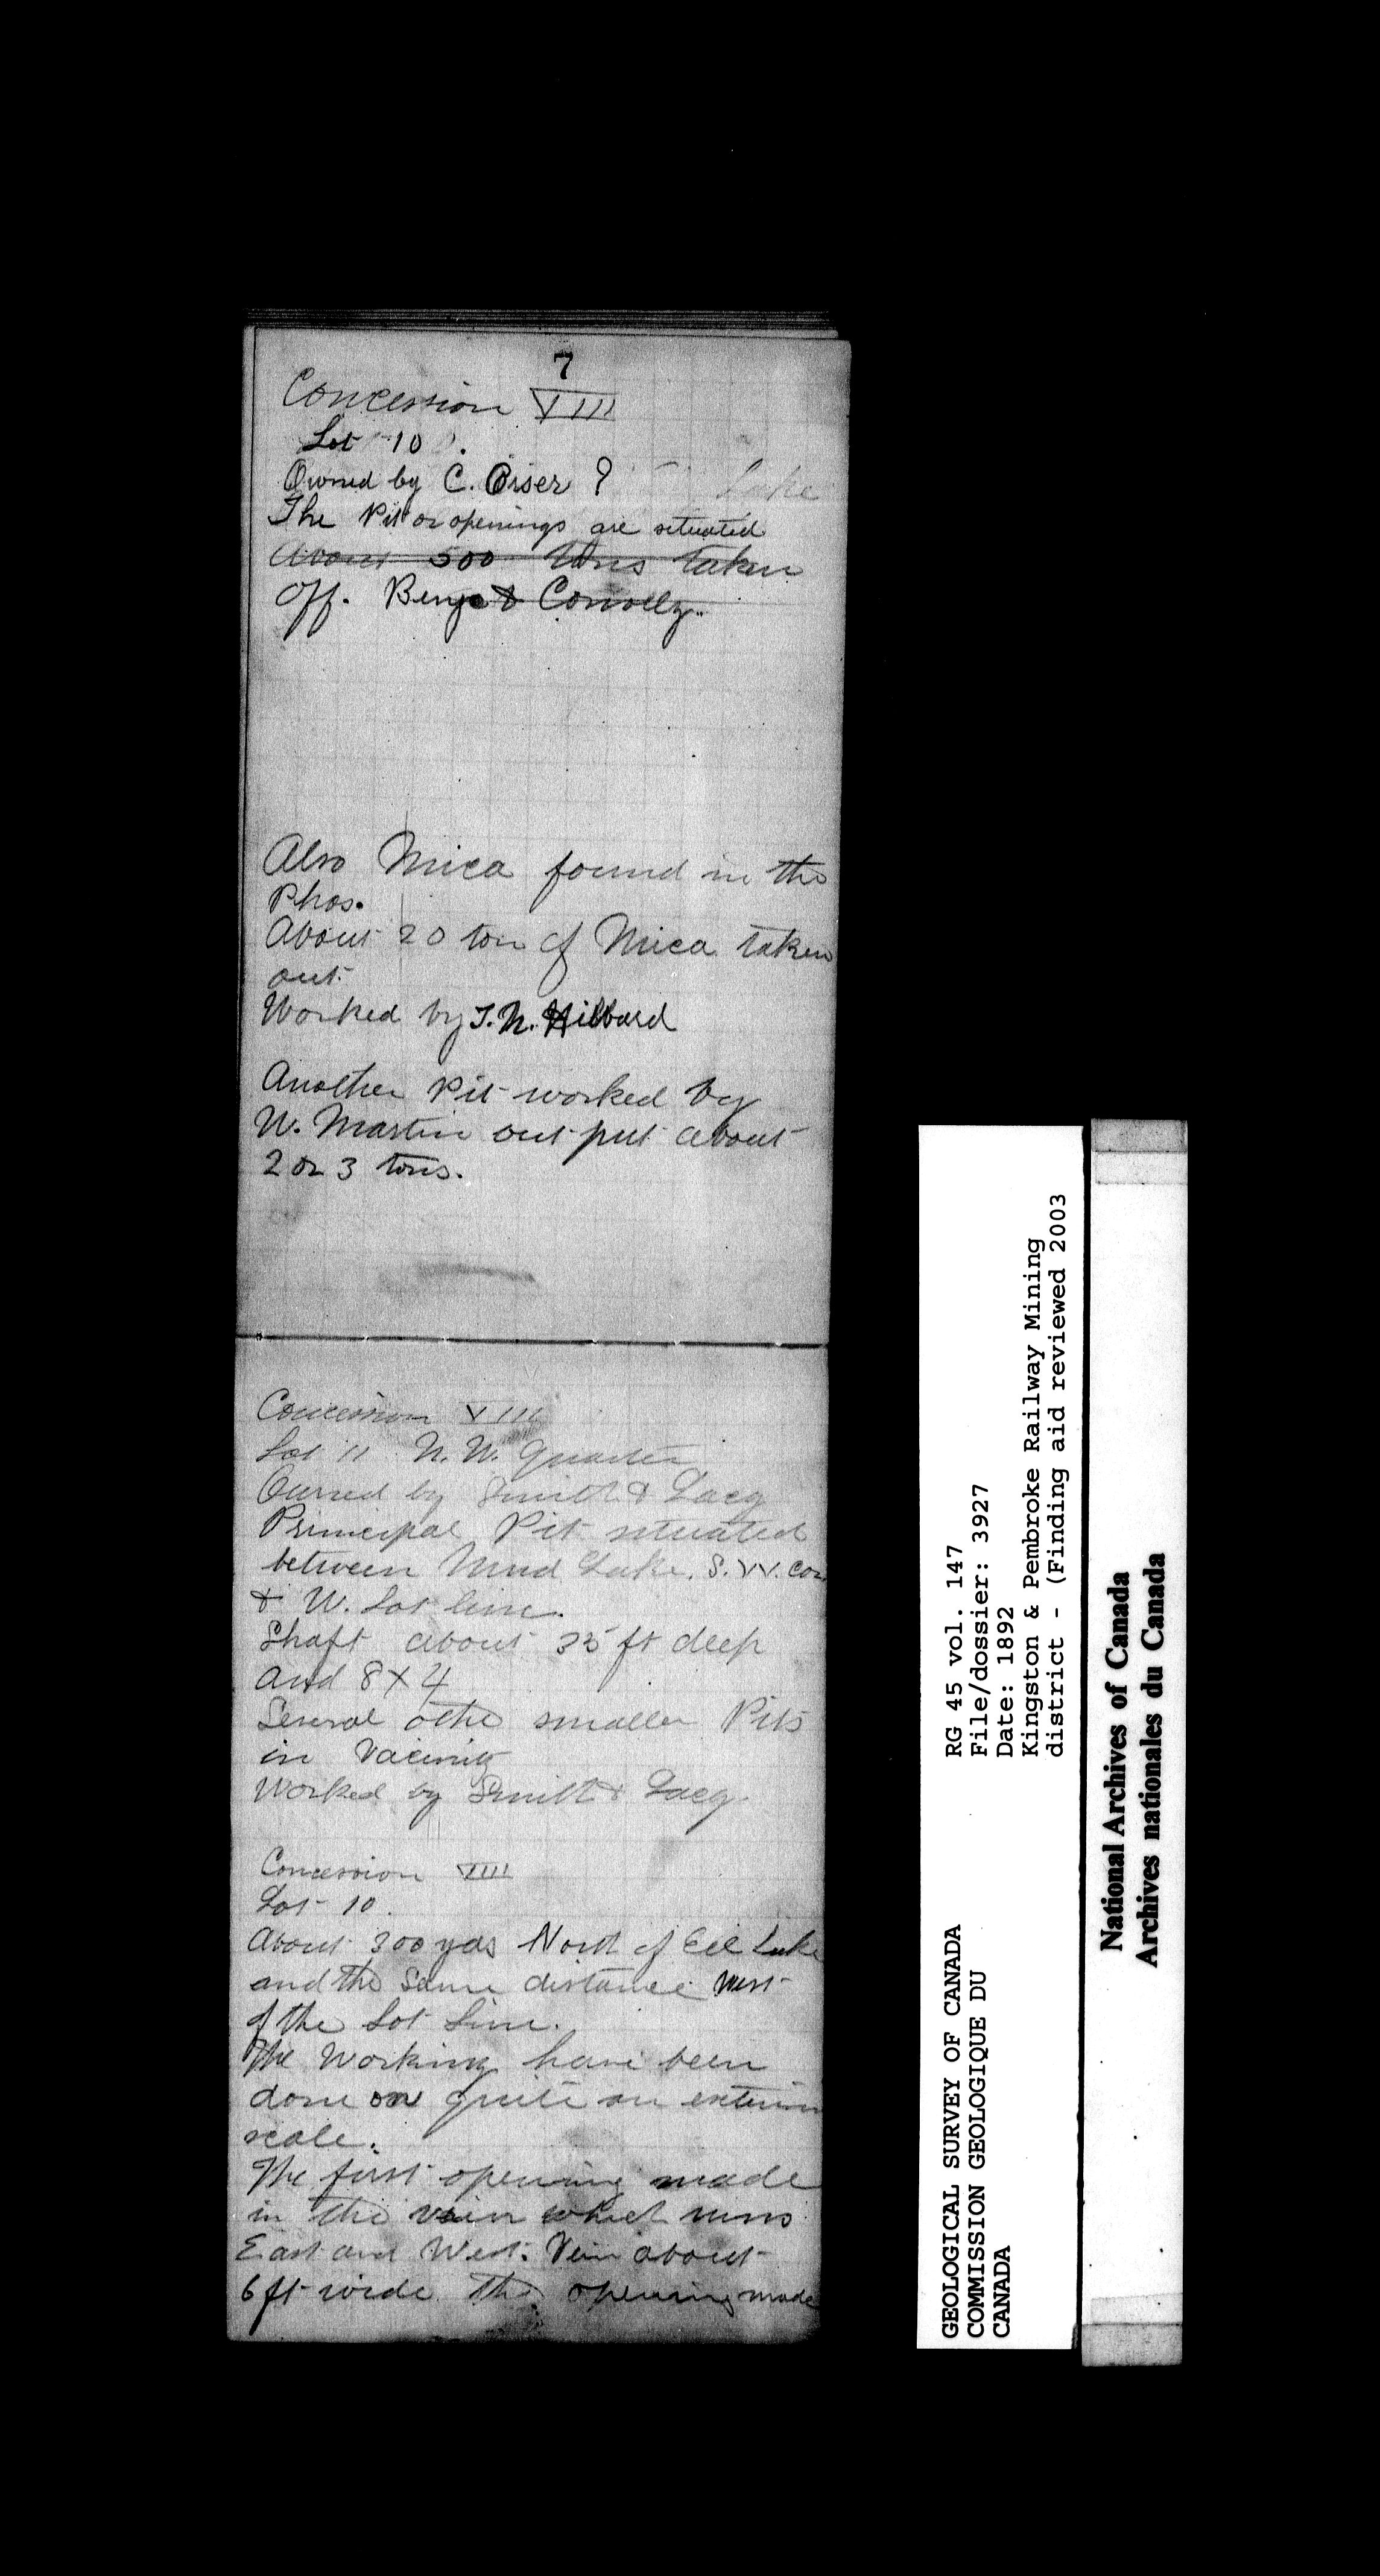 7
Concession VIII
Lot 10.
Owned by C. Orser ?
Lake
The Pit or openings are situated
About 500 tons taken
off. & Conolly.
Also Mica found in the
Phos.
About 20 ton of Mica taken
out.
Worked by J. N. Hilbard
Another Pit worked by
W. Martin out put about
2 or 3 tons.
Concession VIII
Lot 11 N. W. quarter
Owned by Smith & Lacy
Principal Pit situated
between Mud Lake. S. W. cor
& W. Lot line.
Shaft about 35 ft deep
and 8 X 4
Several othe smaller Pits
in vacinity
Worked by Smith & Lacy.
Concession VIII
Lot 10.
About 300 yds North of Eel Lake
and the same distance West
of the Lot Line.
The Working have been
done on quite an
scale.
The first opening made
in the vein which runs
East and West. Vein about
6 ft wide. The opening made
GEOLOGICAL SURVEY OF CANADA
COMMISSION GEOLOGIQUE DU
CANADA
RG 45 vol. 147
File/dossier: 3927
Date: 1892
Kingston & Pembroke Railway Mining
district - (Finding aid reviewed 2003
National Archives of Canada
Archives nationales du Canada